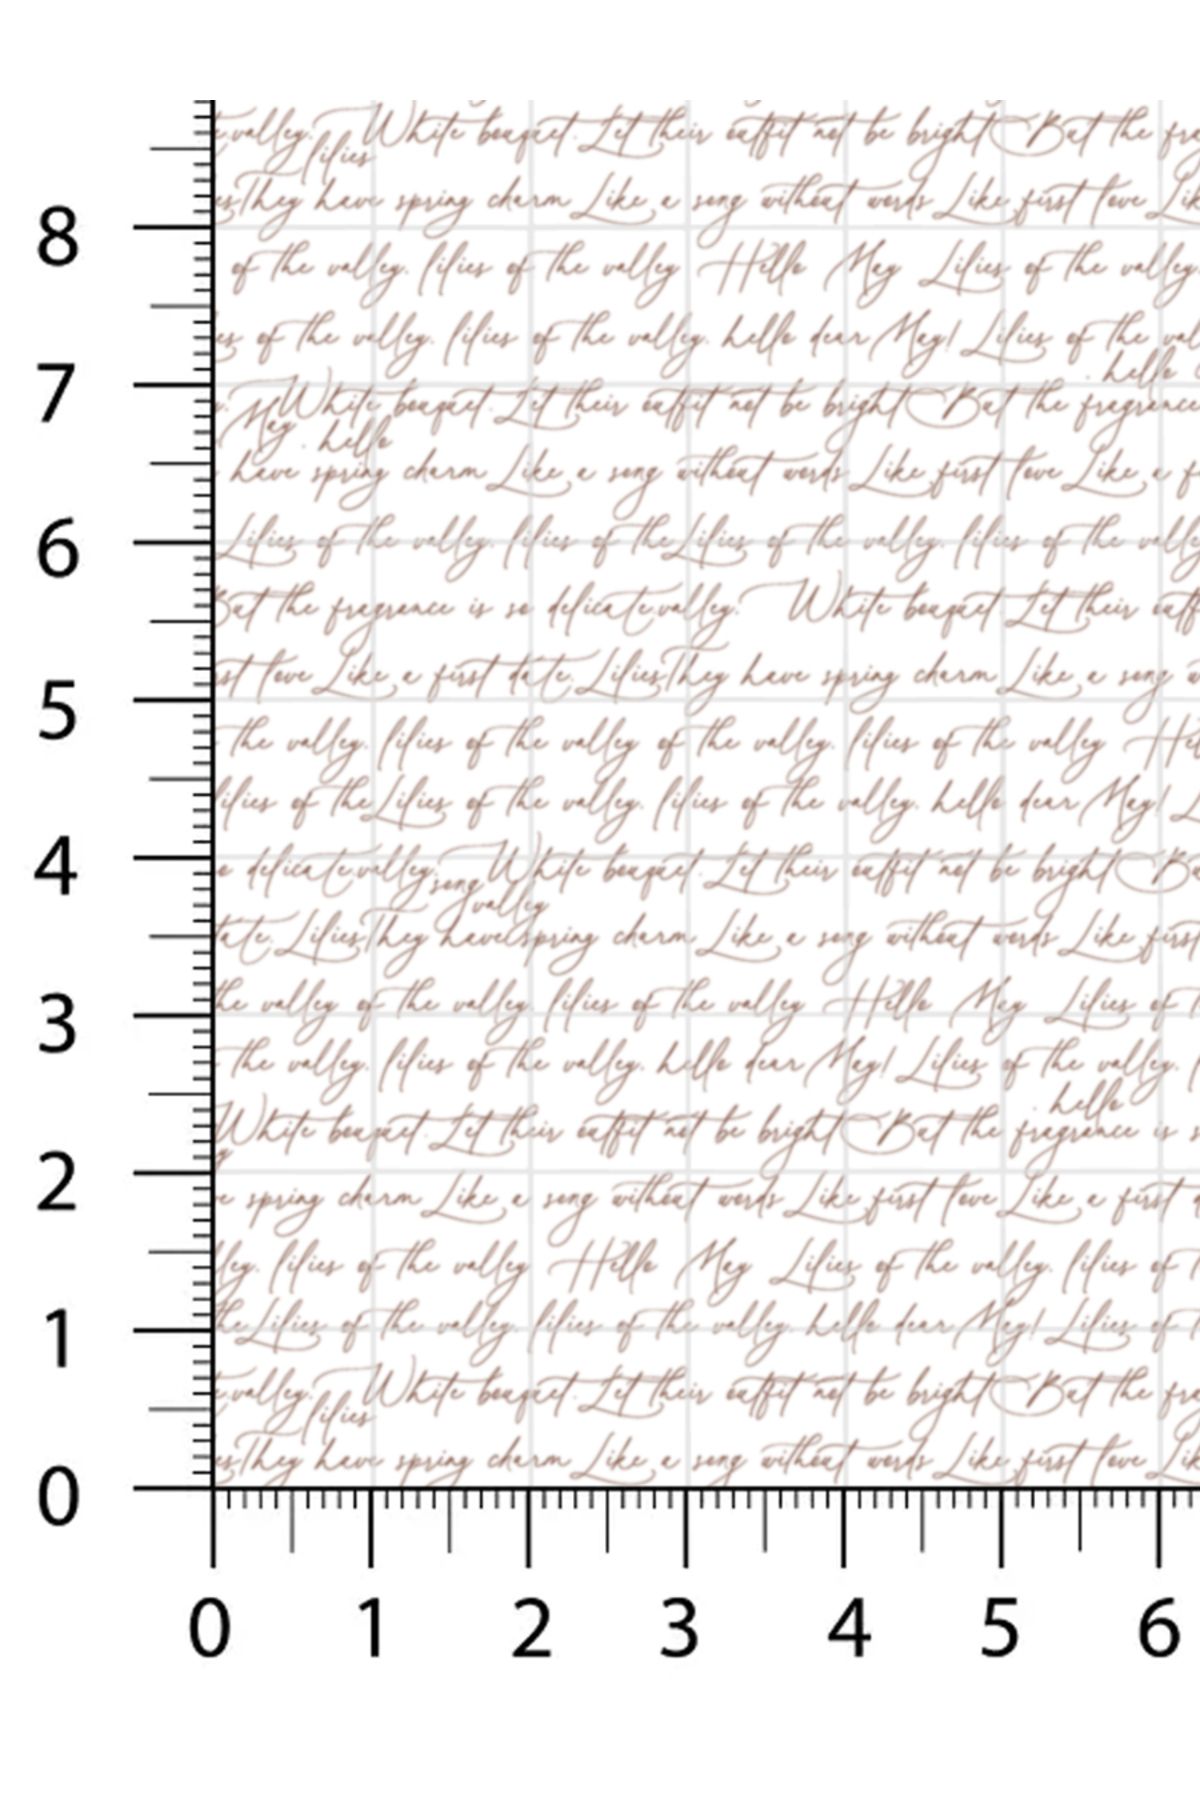 e.valley. White bouquet. Let their outfit not be bright But the fra
lilies
es They have spring charm Like a song without words Like first love Lik
8
of the valley. lilies of the valley Hello May Lilies of the valley.
es of the valley. lilies of the valley. hello dear May! Lilies of the val
. hello
7
y. White bouquet. Let their outfit not be bright But the fragrance
May . hello
have spring charm Like a song without words Like first love Like a f
6
Lilies of the valley. lilies of the Lilies of the valley. lilies of the valle
But the fragrance is so delicate.valley. White bouquet Let their outf
rst love Like a first date. Lilies They have spring charm Like a song w
5
the valley. lilies of the valley of the valley. lilies of the valley Hel
lilies of the Lilies of the valley. lilies of the valley. hello dear May! L
4
o delicate.valley. White bouquet. Let their outfit not be bright Bu
song
valley
date. Lilies They have spring charm Like a song without words Like firs
3
the valley of the valley. lilies of the valley Hello May Lilies of t
the valley. lilies of the valley. hello dear May! Lilies of the valley. l
. hello
White bouquet. Let their outfit not be bright But the fragrance is s
2
e spring charm Like a song without words Like first love Like a first t
lley. lilies of the valley Hello May Lilies of the valley. lilies of t
1
the Lilies of the valley. lilies of the valley. hello dear May! Lilies of t
e.valley. White bouquet. Let their outfit not be bright But the fra
lilies
es They have spring charm Like a song without words Like first love Lik
0
0 1 2 3 4 5 6